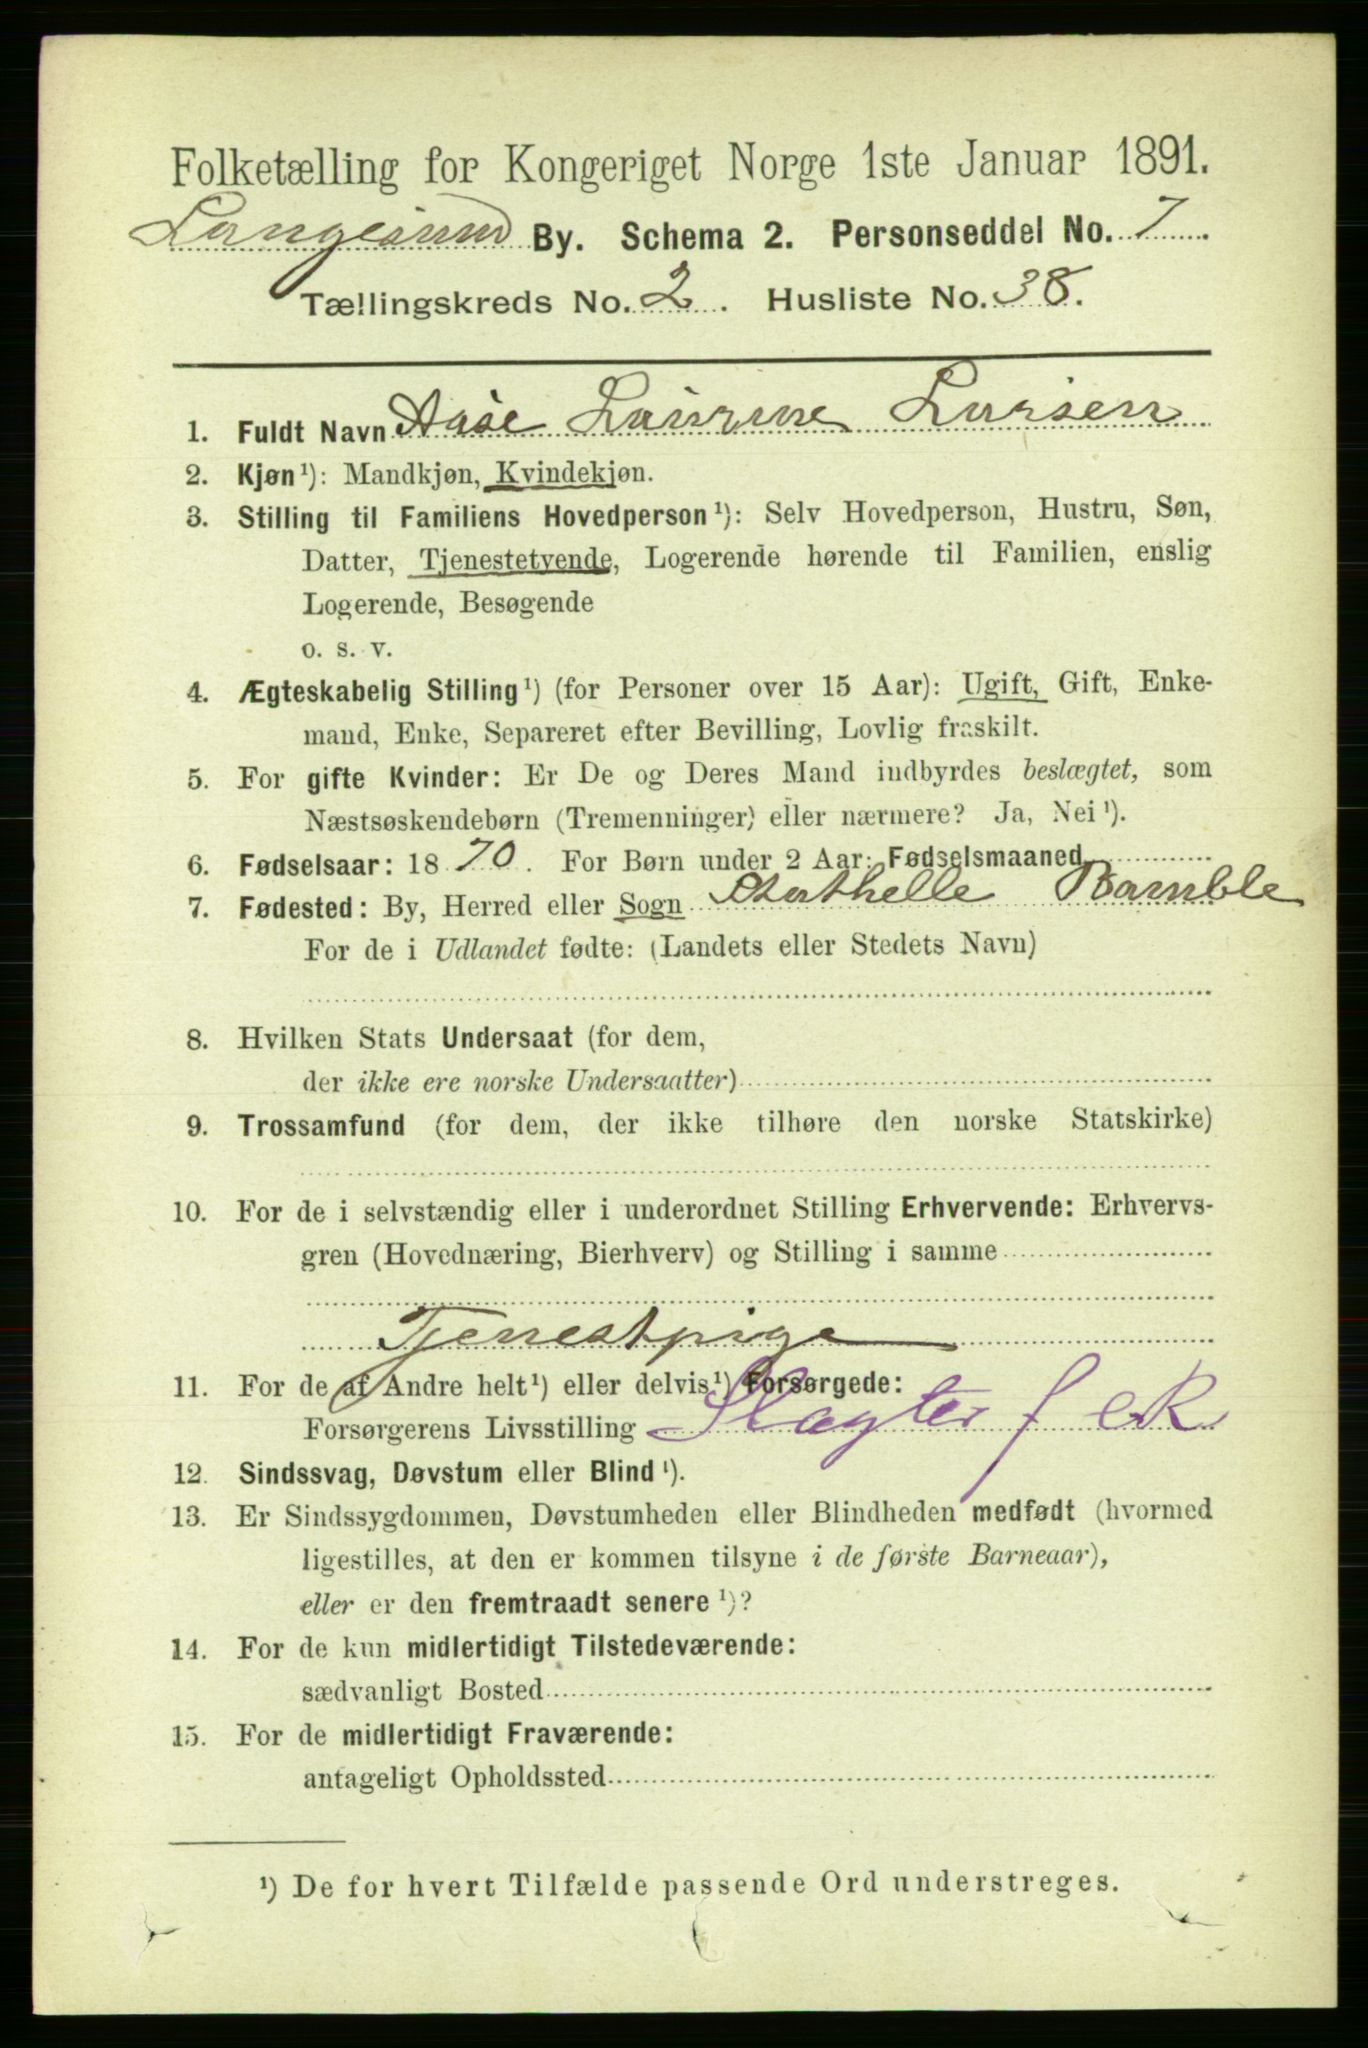 Folketælling for Kongeriget Norge 1ste Januar 1891.
Langesund By. Schema 2. Personseddel No. 7
Tællingskreds No. 2. Husliste No. 38.
1. Fuldt Navn Aase Laurine Larsen
2. Kjøn¹): Mandkjøn, Kvindekjøn.
3. Stilling til Familiens Hovedperson¹): Selv Hovedperson, Hustru, Søn,
Datter, Tjenestetyende, Logerende hørende til Familien, enslig
Logerende, Besøgende
o. s. v.
4. Ægteskabelig Stilling¹) (for Personer over 15 Aar): Ugift, Gift, Enke-
mand, Enke, Separeret efter Bevilling, Lovlig fraskilt.
5. For gifte Kvinder: Er De og Deres Mand indbyrdes beslægtet, som
Næstsøskendebørn (Tremenninger) eller nærmere? Ja, Nei¹).
6. Fødselsaar: 1870. For Børn under 2 Aar: Fødselsmaaned
7. Fødested: By, Herred eller Sogn Stathelle Bamble
For de i Udlandet fødte: (Landets eller Stedets Navn)
8. Hvilken Stats Undersaat (for dem,
der ikke ere norske Undersaatter)
9. Trossamfund (for dem, der ikke tilhøre den norske Statskirke)
10. For de i selvstændig eller i underordnet Stilling Erhvervende: Erhvervs-
gren (Hovednæring, Bierhverv) og Stilling i samme
Tjenestpige
11. For de af Andre helt¹) eller delvis¹) Forsørgede:
Forsørgerens Livsstilling Slagter f
12. Sindssvag, Døvstum eller Blind¹).
13. Er Sindssygdommen, Døvstumheden eller Blindheden medfødt (hvormed
ligestilles, at den er kommen tilsyne i de første Barneaar),
eller er den fremtraadt senere¹)?
14. For de kun midlertidigt Tilstedeværende:
sædvanligt Bosted
15. For de midlertidigt Fraværende:
antageligt Opholdssted
¹) De for hvert Tilfælde passende Ord understreges.